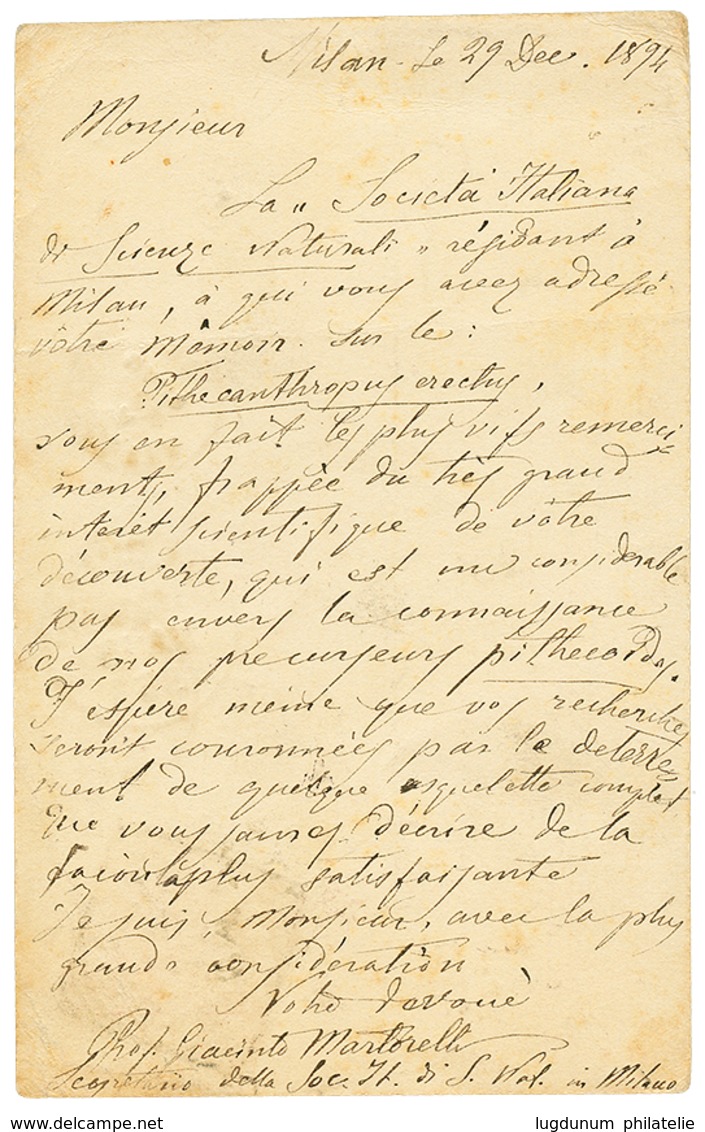 Milan - Le 29 Dec. 1894
Monsieur
La „ Società Italiana
di Scienze Naturali „ résidant à
Milan, à qui vous avez adressé
vôtre Mémoir. sur le :
Pithecanthropus erectus,
vous en fait les plus vifs remerci=
ments, frappée du très grand
interêt scientifique de vôtre
découverte, qui est un considerable
pas envers la connaissance
de nos precurseurs pithecoïdes.
J'espère même que vos recherches
seront couronnées par le deterre=
ment de quelque esquelette complet
que vous saurez décrire de la
façon la plus satisfaisante
Je suis, Monsieur, avec la plus
grande considération
Votre devouè
Prof. Giacinto Martorelli
Segretario della Soc. It. di S. Nat. in Milano
lugdunum philatelie